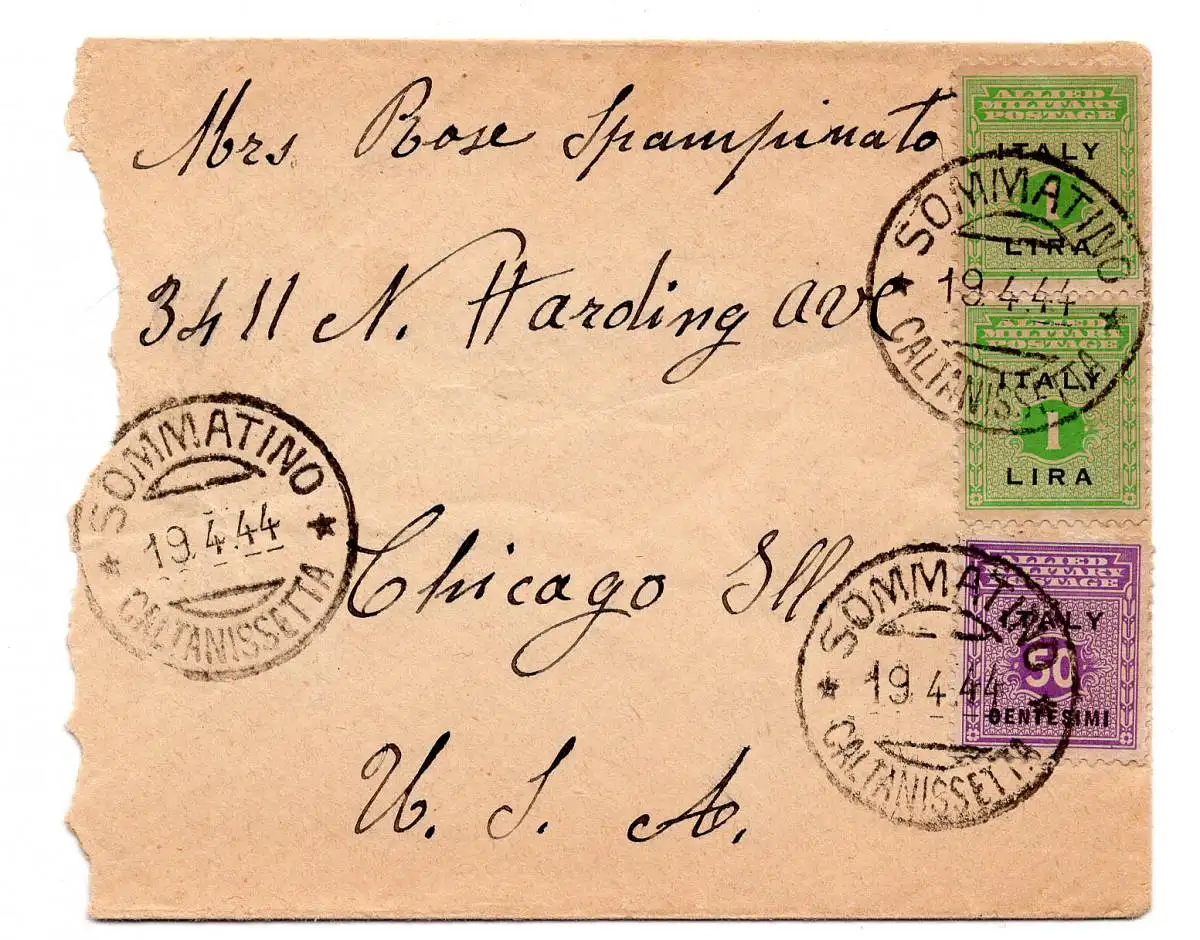 Mrs Rose Spampinato
3411 N. Harding ave
Chicago Ill
U. S. A.
ALLIED
MILITARY
POSTAGE
ITALY
1
LIRA
SOMMATINO
19.4.44
CALTANISSETTA
ALLIED
MILITARY
POSTAGE
ITALY
1
LIRA
SOMMATINO
19.4.44
CALTANISSETTA
ALLIED
MILITARY
POSTAGE
ITALY
50
CENTESIMI
SOMMATINO
19.4.44
CALTANISSETTA